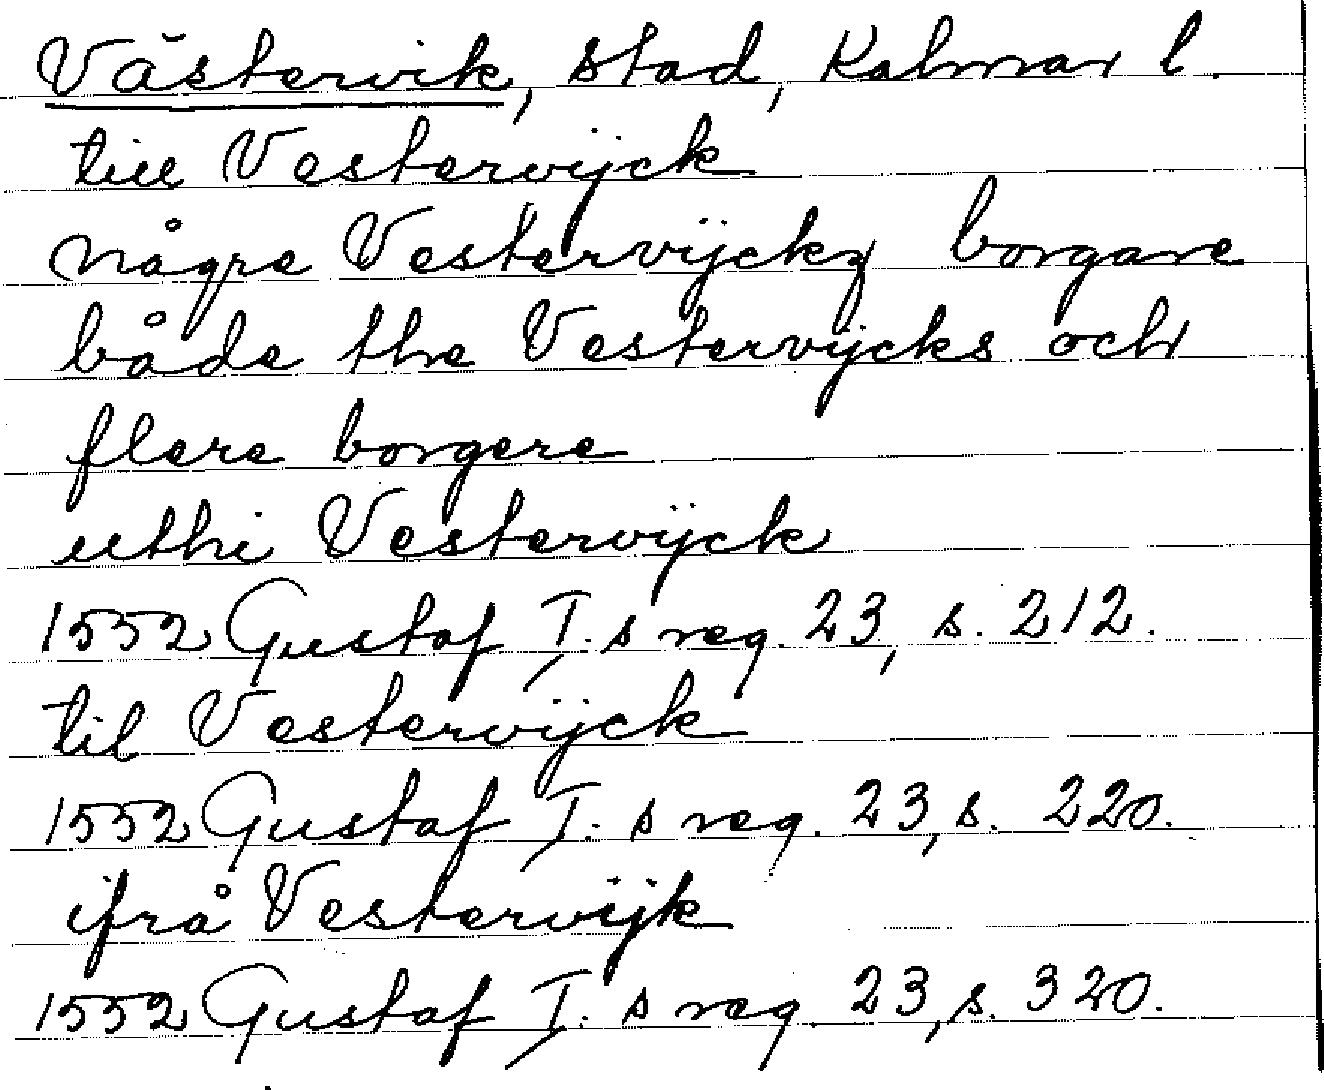 Västervik, stad, Kalmar l.
till Vestervijck
någre Vestervijckz borgare
både the Vestervijcks och
flere borgere
uthi Vestervijck
1552 Gustaf I.s reg. 23, s. 212.
til Vestervijck
1552 Gustaf I.s reg. 23, s. 220.
ifrå Vestervijk
1552 Gustaf I.s reg. 23, s. 320.